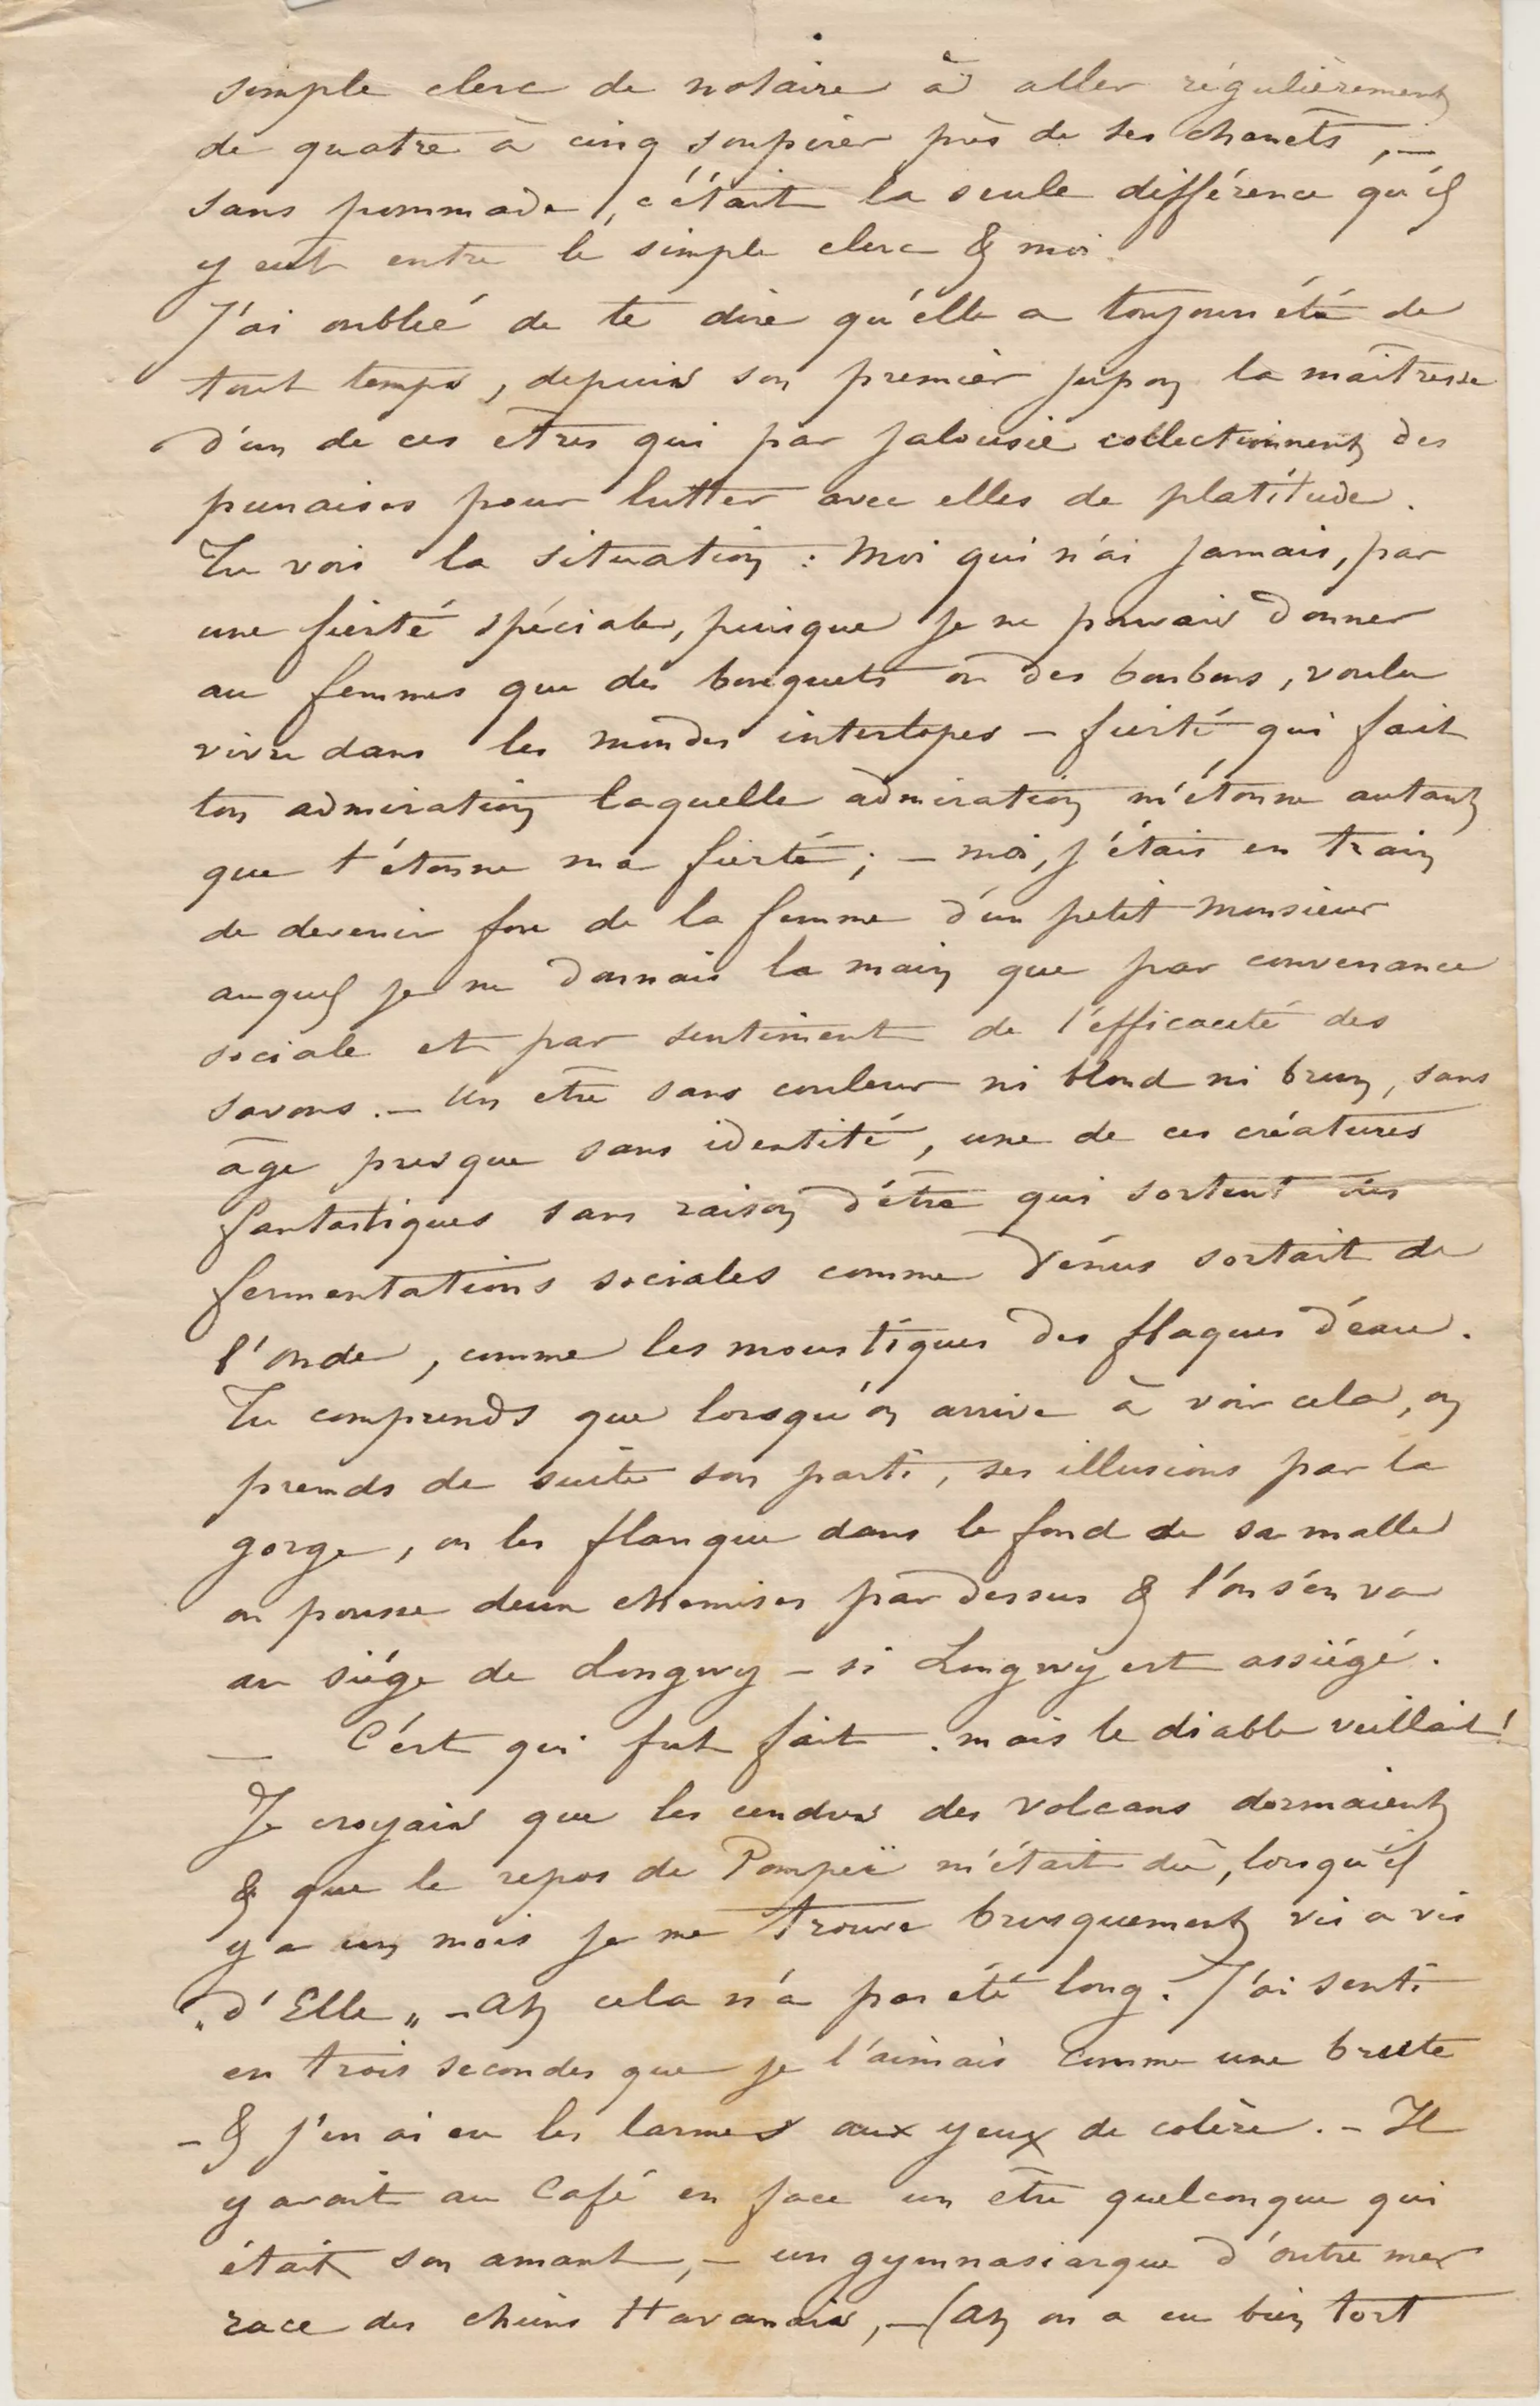 simple clerc de notaire à aller régulièrement
de quatre à cinq soupirer près de ses chenets, —
sans pommade, c'était la seule différence qu'il
y eut entre le simple clerc & moi.
J'ai oublié de te dire qu'elle a toujours été de
tout temps, depuis son premier jupon la maîtresse
d'un de ces êtres qui par jalousie collectionnent des
punaises pour lutter avec elles de platitude.
Tu vois la situation : Moi qui n'ai jamais, par
une fierté spéciale, puisque je ne pouvais donner
au femmes que des bouquets ou des bonbons, voulu
vivre dans les mondes interlopes — fierté qui fait
ton admiration laquelle admiration m'étonne autant
que t'étonne ma fierté ; — moi, j'étais en train
de devenir fou de la femme d'un petit Monsieur
auquel je ne donnais la main que par convenance
sociale et par sentiment de l'efficacité des
savons. — Un être sans couleur ni blond ni brun, sans
âge presque sans identité, une de ces créatures
fantastiques sans raison d'être qui sortent des
fermentations sociales comme Vénus sortait de
l'onde, comme les moustiques des flaques d'eau.
Tu comprends que lorsqu'on arrive à voir cela, on
prends de suite son parti, ses illusions par la
gorge, on les flanque dans le fond de sa malle
on pousse deux chemises par dessus & l'on s'en va
au siége de Longwy — si Longwy est assiégé.
— C'est qui fut fait. mais le diable veillait !
Je croyais que les cendres des volcans dormaient
& que le repos de Pompeï m'était dû, lorsqu'il
y a un mois je me trouve brusquement vis a vis
"d'Elle" — Ah cela n'a pas été long. J'ai senti
en trois secondes que je l'aimais comme une brute
— & j'en ai eu les larmes aux yeux de colère. — Il
y avait au Café en face un être quelconque qui
était son amant, — un gymnasiarque d'outre mer
race des chiens Havanais, — (Ah on a eu bien tort